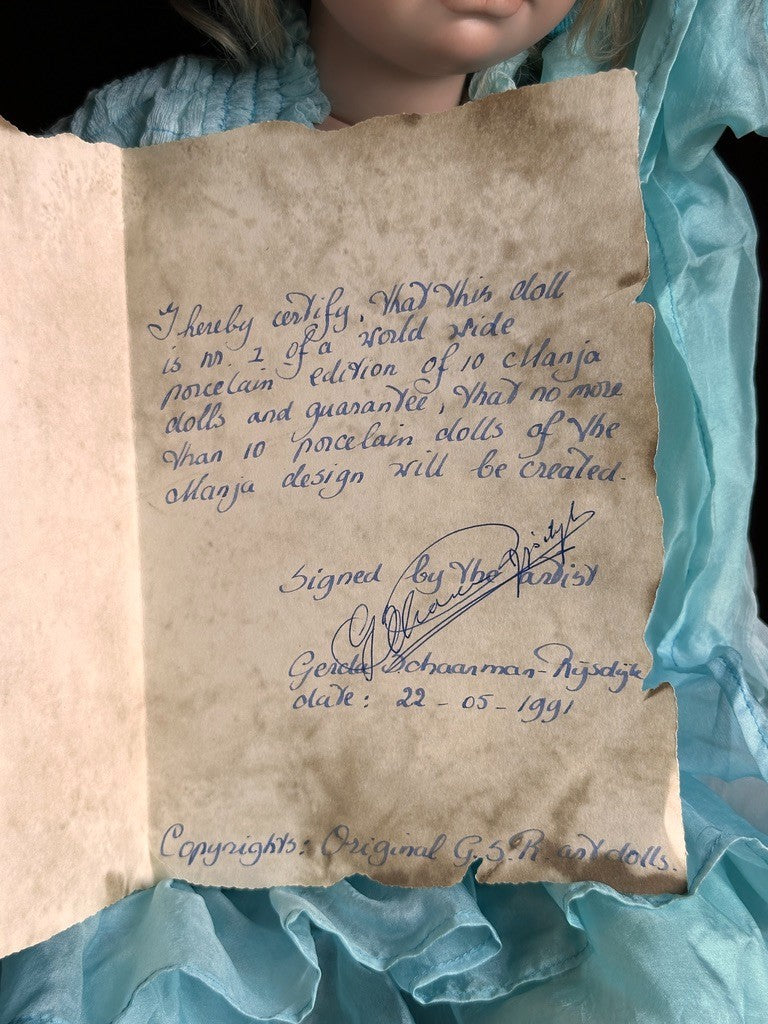 I hereby certify, that this doll
is nr. 1 of a world wide
porcelain edition of 10 Manja
dolls and guarantee, that no more
than 10 porcelain dolls of the
Manja design will be created.
Signed by the artist
Gerda Schaarman-Rijsdijk
date: 22-05-1991
Copyrights: Original G.S.R art dolls.